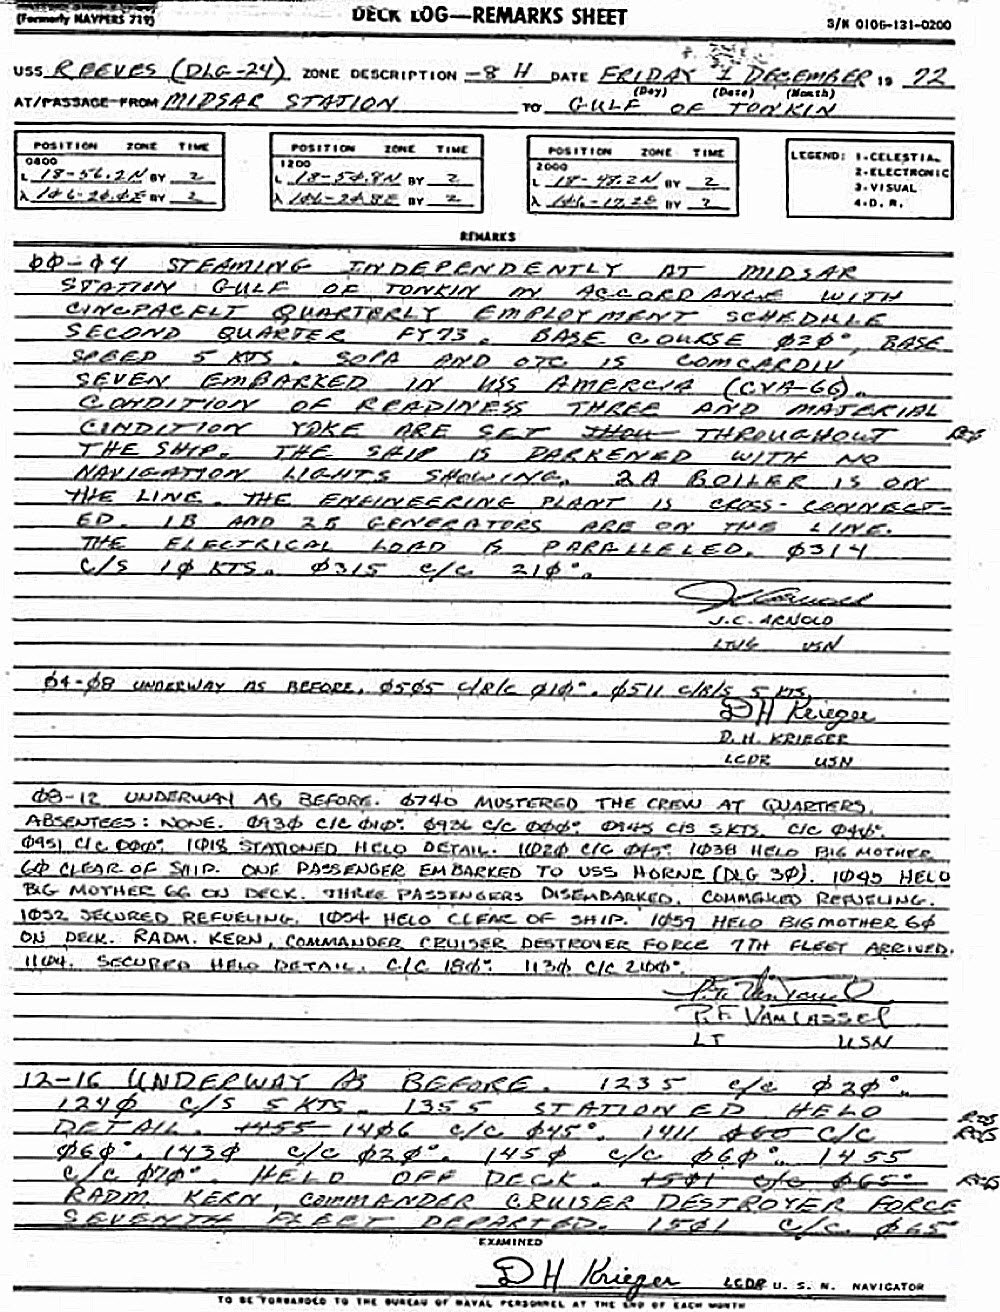 (Formerly NAVPERS 719)
DECK LOG—REMARKS SHEET
S/N 0106-131-0200
USS REEVES (DLG-24) ZONE DESCRIPTION -8 H DATE FRIDAY 1 DECEMBER 19 72
(Day) (Date) (Month)
AT/PASSAGE FROM MIDSAR STATION TO GULF OF TONKIN
POSITION ZONE TIME
0800
L 18-56.2N BY 2
λ BY 2
POSITION ZONE TIME
1200
L 18-54.8N BY 2
λ 106-24.8E BY 2
POSITION ZONE TIME
2000
L 18-48.2N BY 2
λ 106-17.2E BY 2
LEGEND: 1-CELESTIAL
2-ELECTRONIC
3-VISUAL
4-D. R.
REMARKS
ØØ-Ø4 STEAMING INDEPENDENTLY AT MIDSAR
STATION GULF OF TONKIN IN ACCORDANCE WITH
CINCPACFLT QUARTERLY EMPLOYMENT SCHEDULE
SECOND QUARTER FY73. BASE COURSE Ø2Ø°, BASE
SPEED 5 KTS. SOPA AND OTC IS COMCARDIV
SEVEN EMBARKED IN USS AMERCIA (CVA-66).
CONDITION OF READINESS THREE AND MATERIAL
CONDITION YOKE ARE SET THOU THROUGHOUT
THE SHIP. THE SHIP IS DARKENED WITH NO
NAVIGATION LIGHTS SHOWING. 2A BOILER IS ON
THE LINE. THE ENGINEERING PLANT IS CROSS-CONNECT-
ED. 1B AND 2B GENERATORS ARE ON THE LINE.
THE ELECTRICAL LOAD IS PARALLELED. Ø314
C/S 1Ø KTS. Ø315 C/C 21Ø°.
J.C. ARNOLD
LTJG USN
Ø4-Ø8 UNDERWAY AS BEFORE. Ø5Ø5 C/B/C Ø1Ø°. Ø511 C/B/S 5 KTS.
D H Krieger
D. H. KRIEGER
LCDR USN
Ø8-12 UNDERWAY AS BEFORE. Ø740 MUSTERED THE CREW AT QUARTERS.
ABSENTEES: NONE. Ø93Ø C/C Ø1Ø°. Ø936 C/C ØØØ°. Ø945 C/S 5 KTS. C/C
Ø951 C/C ØØØ°. 1Ø18 STATIONED HELO DETAIL. 1Ø2Ø C/C Ø45° 1Ø38 HELO BIG MOTHER
6Ø CLEAR OF SHIP. ONE PASSENGER EMBARKED TO USS HORNE (DLG 3Ø). 1Ø45 HELO
BIG MOTHER 66 ON DECK. THREE PASSENGERS DISEMBARKED. COMMENCED REFUELING.
1Ø52 SECURED REFUELING. 1Ø54 HELO CLEAR OF SHIP. 1Ø59 HELO BIG MOTHER 6Ø
ON DECK. RADM. KERN, COMMANDER CRUISER DESTROYER FORCE 7TH FLEET ARRIVED.
11Ø4. SECURED HELO DETAIL. C/C 18Ø°. 113Ø C/C
LT USN
12-16 UNDERWAY AS BEFORE. 1235 C/C Ø2Ø°.
124Ø C/S 5 KTS. 1355 STATIONED HELO
DETAIL. 1455 14Ø6 C/C Ø45°. 1411 Ø60 C/C
Ø6Ø°. 143Ø C/C Ø2Ø°. 145Ø C/C Ø6Ø°. 1455
C/C Ø7Ø°. HELO OFF DECK. 15Ø1 C/C Ø65°
RADM. KERN, COMMANDER CRUISER DESTROYER FORCE
SEVENTH FLEET DEPARTED. 15Ø1 C/C Ø65°
EXAMINED
D H Krieger LCDR U. S. N. NAVIGATOR
TO BE FORWARDED TO THE BUREAU OF NAVAL PERSONNEL AT THE END OF EACH MONTH